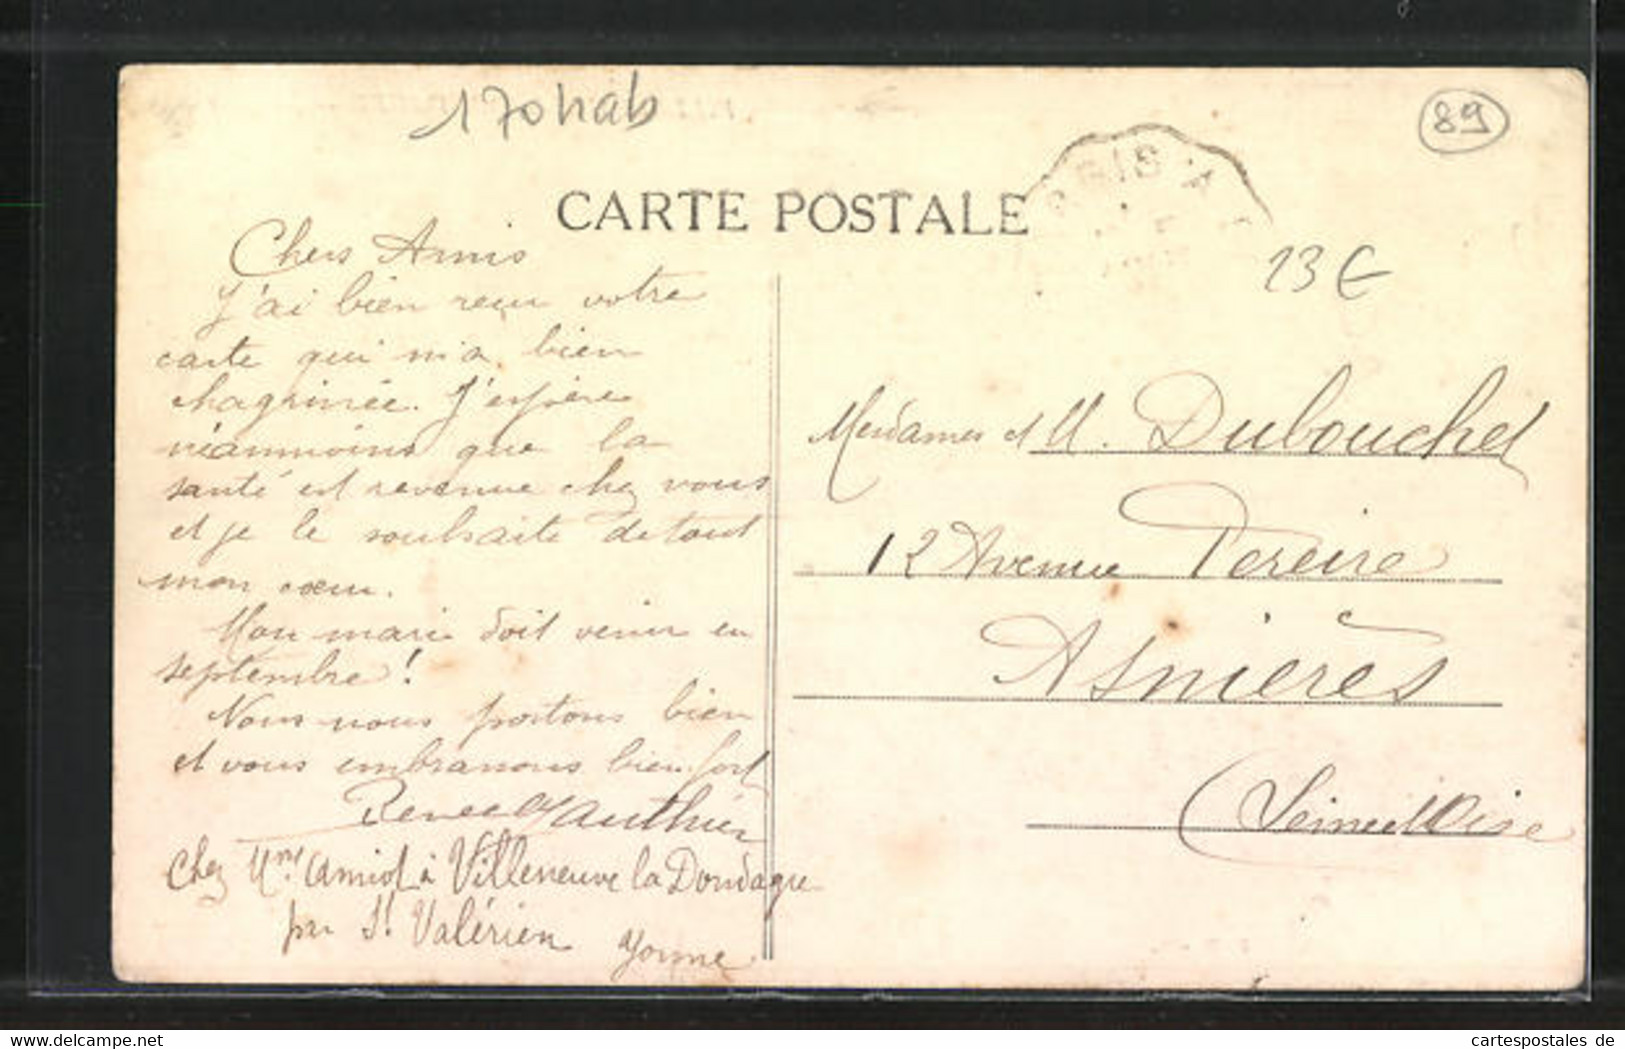 170 hab
89
CARTE POSTALE
GIS
13€
Chers Amis
J'ai bien reçu votre
carte qui m'a bien
chagrinée. J'espère
néanmoins que la
santé est revenue chez vous
et je le souhaite de tout
mon cœur.
Mon mari doit venir en
septembre!
Nous nous portons bien
et vous embrassons bien fort
Renée Gauthier
Chez Mme Amiot à Villeneuve la Dondagre
par St Valérien Yonne
Mesdames et M. Dubouchet
12 Avenue Pereire
Asnières
(Seine et Oise
cartespostales de
www.delcampe.net